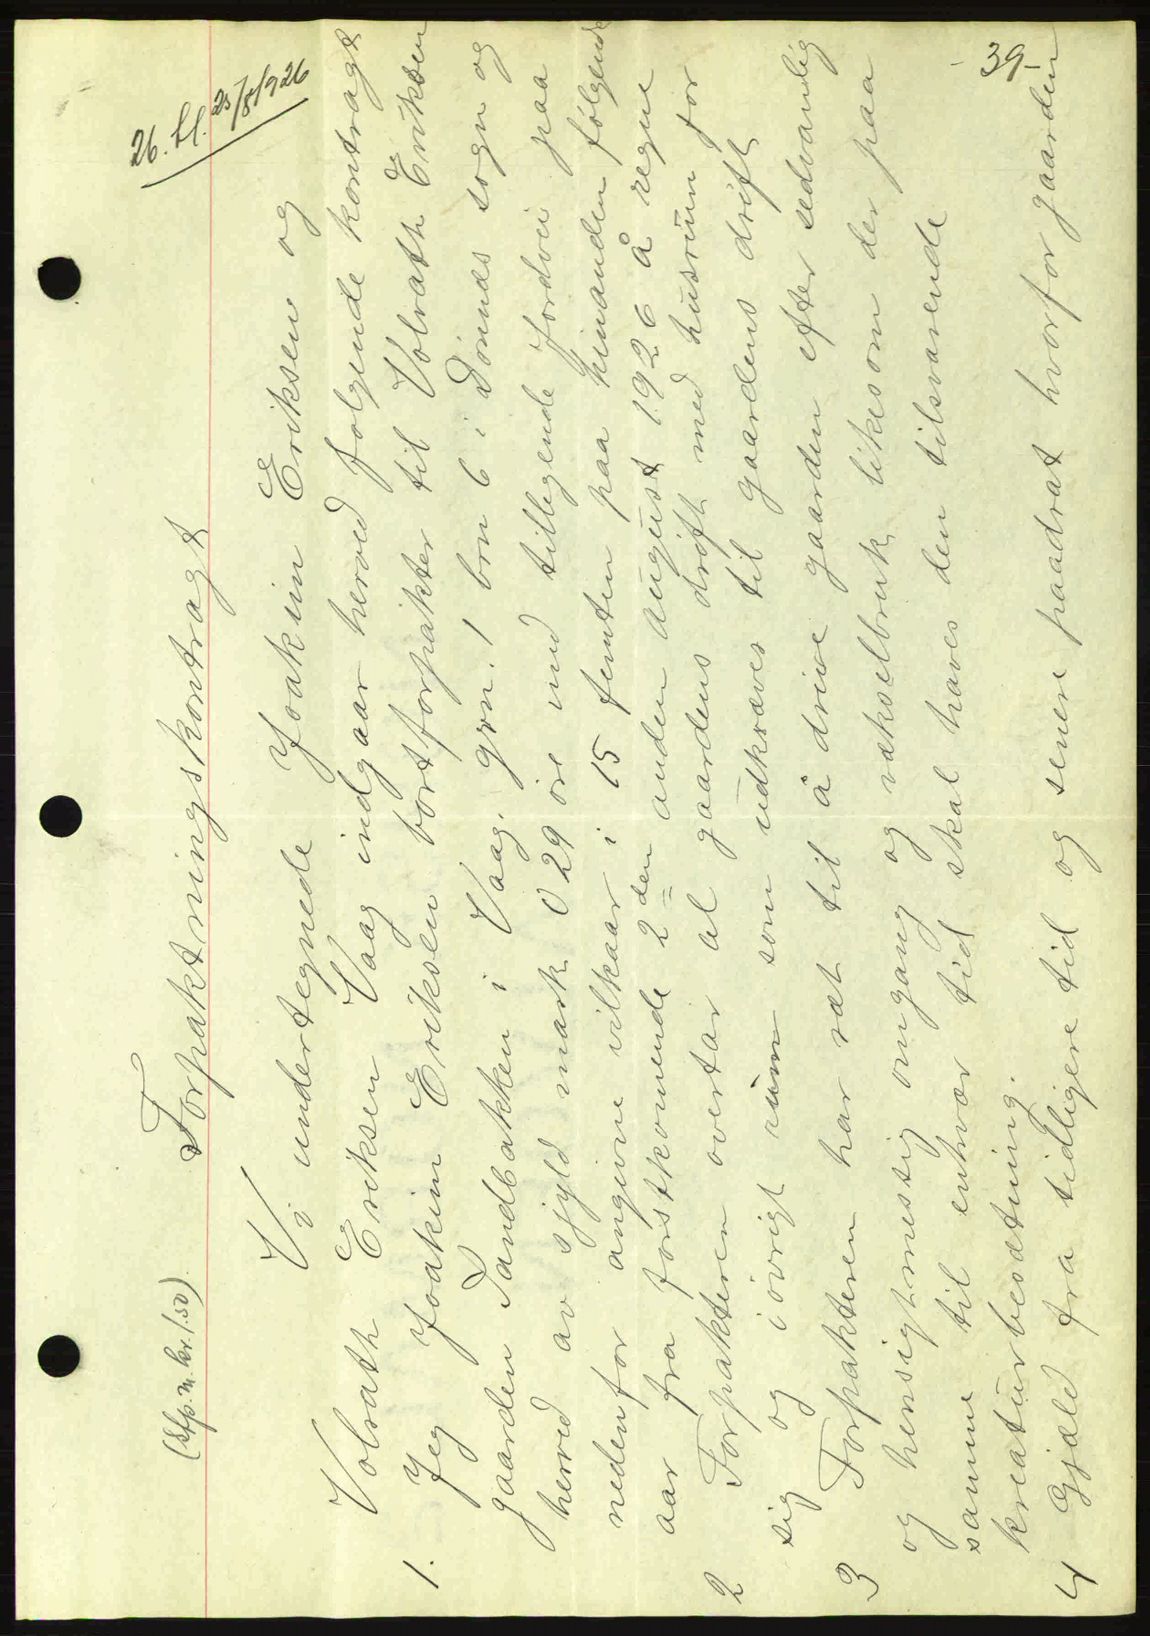 (Stp. m. kr. 1.50)
26. H. 25/8 1926
39-
Forpaktningskontragt
Vi undertegnede Joakim Eriksen og
Volrath Eriksen Vaag indgaar herved følgende kontragt
1. Jeg Joakim Eriksen bortforpakter til Volrath Eriksen
gaarden Sandbakken i Vaag. grn. 1 brn 6 i Dønnes sogn og
herred av skyld mark 0 29 øre med tillegende Jordvei paa
nedenfor angivne vilkaar i 15 femten paa hinanden følgende
aar fra førstkomende 2den anden august 1926 å regne
2 Forpakteren overtar al gaardens drift med husrum for
sig og i øvrigt rum som udkræves til gaardens drift
3 Forpakteren har ræt til å drive gaarden efter sedvanlig
og hensigtmessig omgang og vekselbruk likesom der paa
samme til enhvær tid skal haves den tilsvarende
kreaturbesætning.
4 Gjæld fra tidligere tid og senere paadrat hvorfor gaarden